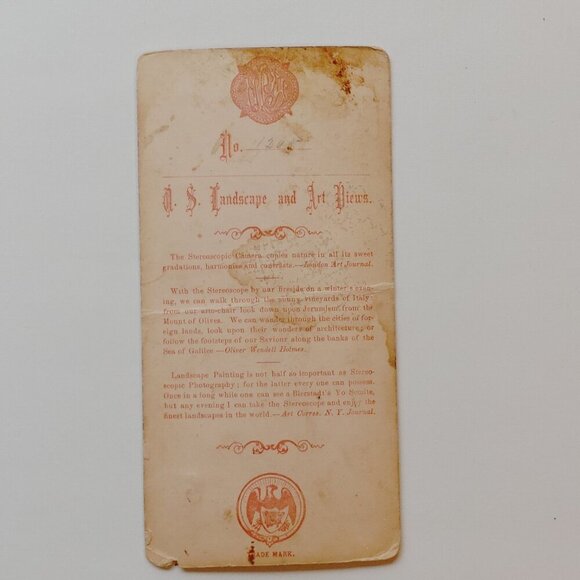 No.
U. S. Landscape and Art Views.
The Stereoscopic Camera copies nature in all its sweet
gradations, harmonies and contrasts.—London Art Journal.
With the Stereoscope by our fireside on a winter's even-
ing, we can walk through the sunny vineyards of Italy
from our arm-chair look down upon Jerusalem from the
Mount of Olives. We can wander through the cities of for-
eign lands, look upon their wonders of architecture, or
follow the footsteps of our Saviour along the banks of the
Sea of Galilee—Oliver Wendell Holmes.
Landscape Painting is not half so important as Stereo-
scopic Photography; for the latter every one can possess.
Once in a long while one can see a Bierstadt's Yo Semite,
but any evening I can take the Stereoscope and enjoy the
finest landscapes in the world.—Art Corres. N. Y. Journal.
ADE MARK.